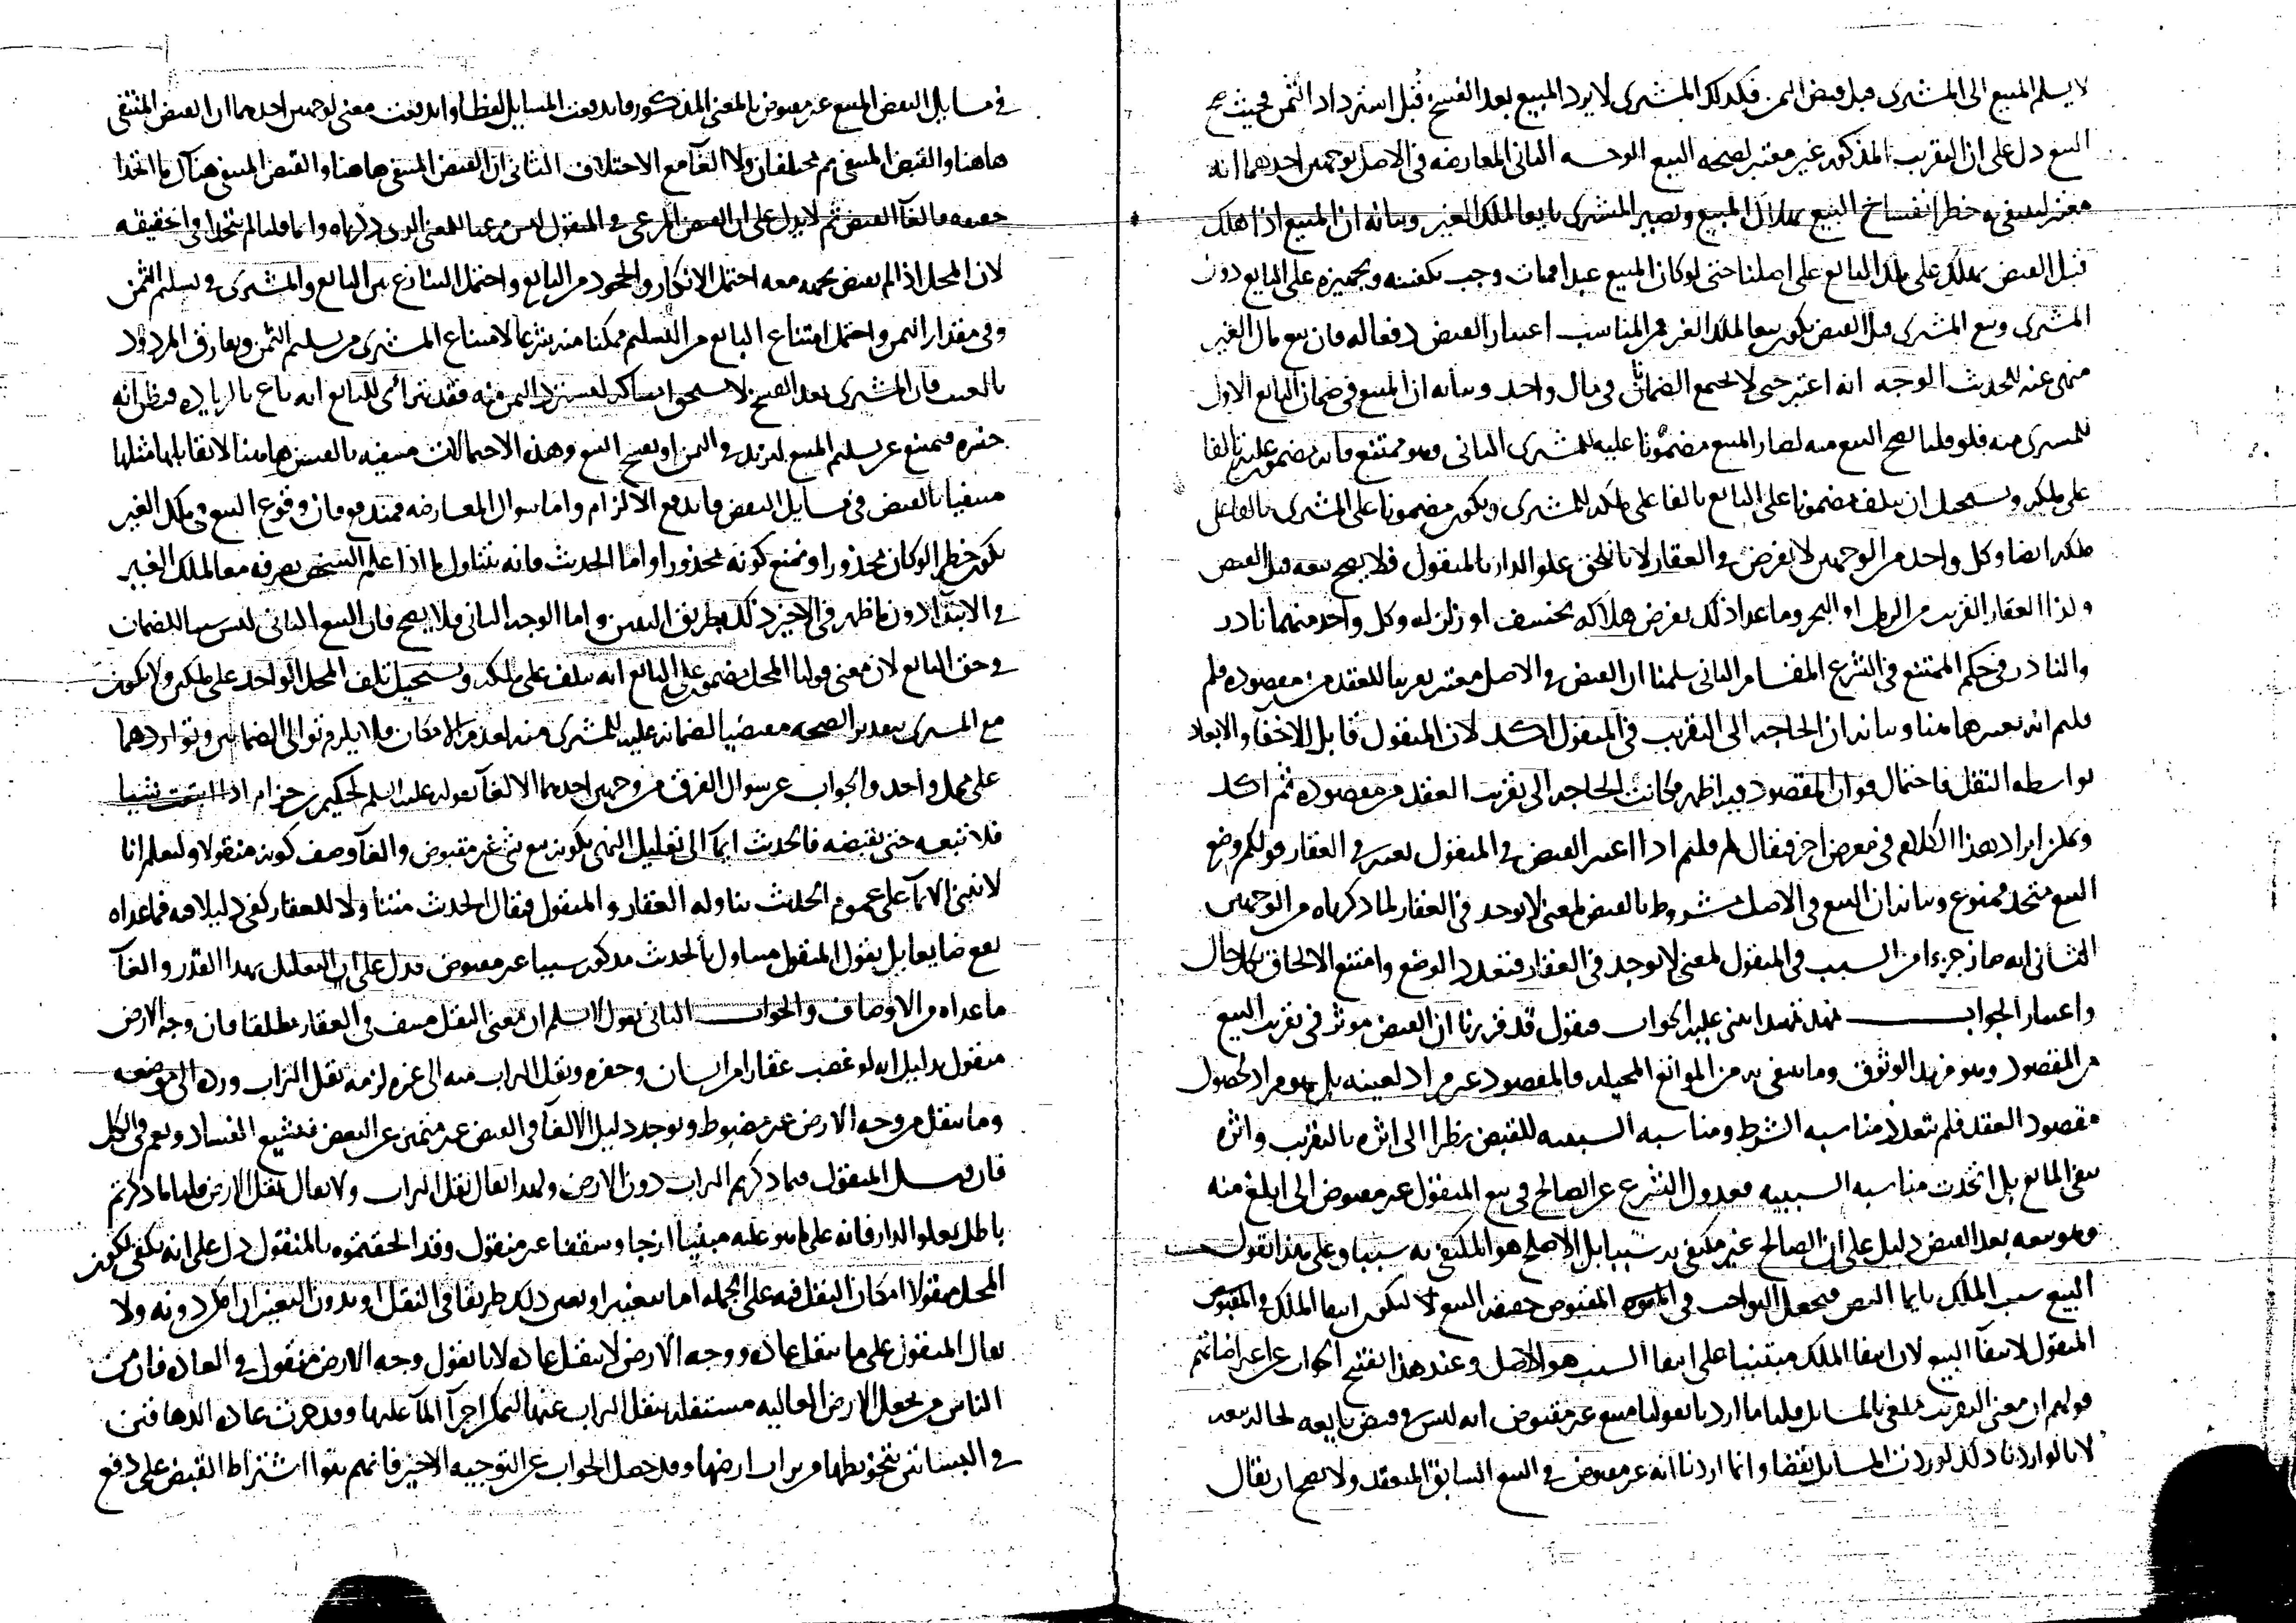 لا يسلم المبيع الى المشترى قبل قبض الثمن فكذلك المشترى لا يرد المبيع بعد الفسخ قبل استرداد الثمن فحيث صح
البيع دل على ان التقريب المذكور غير معتبر لصحه البيع الوجه الثانى المعارضه فى الاصل بوجهين احدهما انه
معتبر لينتفى به خطر انفساخ البيع بهلاك المبيع ويصير المشترى بايعا لملك الغير وبيانه ان المبيع اذا هلك
قبل القبض يهلك على ملك البائع على اصلنا حتى لو كان المبيع عبدا فمات وجب تكفينه وتجهيزه على البايع دون
المشترى وبيع المشترى قبل القبض يكون بيعا لملك الغير فمن المناسب اعتبار القبض دفعا له فان بيع مال الغير
منهى عنه للحديث الوجه انه اعتبر حتى لا يجتمع الضمانان فى مال واحد وبيانه ان المبيع فى ضمان البايع الاول
للمشترى منه فلو قلنا يصح البيع منه لصار المبيع مضمونا عليه للمشترى الثانى وهو ممتنع فانه مضمون عليه تالفا
على ملكه ويستحيل ان يتلف مضمونا على البائع تالفا على ملكه للمشترى ويكون مضمونا على المشترى تالفا على
ملكه ايضا وكل واحد من الوجهين لا يفرض فى العقار لانا نلحق علو الدار بالمنقول فلا يصح بيعه قبل القبض
وكذا العقار القريب من الرمل او البحر وما عدا ذلك يفرض هلاكه بخسف او زلزله وكل واحد منهما نادر
والنادر فى حكم الممتنع فى الشرع المقام الثانى سلمنا ان القبض فى الاصل معتبر تقريبا للعقد من مقصوده فلم
قلتم انه يعتبر هاهنا وبيانه ان الحاجه الى التقريب فى المنقول اكد لان المنقول قابل للاخفا والابعاد
بواسطه النقل فاحتمال فوات المقصود فيه اظهر فكانت الحاجه الى تقريب العقد من مقصوده ثم اكد
ويمكن ايراد هذا الكلام فى معرض اخر فيقال لم قلتم اذا اعتبر القبض فى المنقول يعتبر فى العقار قولكم وضع
البيع متحد ممنوع وبيانه ان البيع فى الاصل مشروط بالقبض لمعنى لا يوجد فى العقار لما ذكرناه من الوجهين
الثانى انه صار جزءا من السبب فى المنقول لمعنى لا يوجد فى العقار فتعدد الوضع وامتنع الالحاق بكل حال
واعتبار الجواب نمهد تمهيدا نبنى عليه الجواب فنقول قد قررنا ان القبض موثر فى تقريب البيع
من المقصود وهو مزيد الوثوق وما ينتفى به من الموانع المخيله فالمقصود غير مراد لعينه بل هو مراد لحصول
مقصود العقد فلم تتعدد مناسبه الشرط ومناسبه السببيه للقبض نظرا الى اثره بالتقريب واثره
بنفى المانع بل اتحدت مناسبه السببيه فعدول الشرع عن الصالح فى بيع المنقول غير مقبوض الى ابلغ منه
وهو بيعه بعد القبض دليل على ان الصالح غير مكتفى به سببا بل الاصلح هو المكتفى به سببا وعلى هذا نقول
البيع سبب الملك بايما النص فيجعل الواجب فى المقبوض حقيقه البيع لا ليكون انتفا الملك فى المقبوض
المنقول لانتفا البيع لان انتفا الملك مبتنيا على انتفا السبب هو الاصل وعند هذا نفتتح الجواب عن اعتراضاتهم
قولهم ان معنى التقريب ملغى بالمسايل قلنا ما اردنا بقولنا مبيع غير مقبوض انه ليس فى قبض بايعه لحاله بيعه
لانا لو اردنا ذلك لوردت المسايل نقضا وانما اردنا انه غير مقبوض فى البيع السابق المنعقد ولا يصح ان يقال
فى مسايل النقض المبيع غير مقبوض بالمعنى المذكور فاندفعت المسايل لفظا واندفعت معنى لوجهين احدهما ان القبض المنتفى
هاهنا والقبض المنتفى ثم مختلفان ولا الغآ مع الاختلاف الثانى ان القبض المنتفى هاهنا والقبض المنتفى هناك ما اتحدا
حقيقه فالغآ القبض ثم لا يدل على ان القبض المرعى فى المنقول ليس مرعيا للمعنى الذى ذكرناه وانما قلنا لم يتحدا فى حقيقه
لان المحل اذا لم يقبض بجهه معه احتمل الانكار والجحود من البايع واحتمل التنازع بين البايع والمشترى فى تسليم الثمن
وفى مقدار الثمن واحتمل امتناع البايع من التسليم ممكنا منه شرعا لامتناع المشترى من تسليم الثمن ويفارق المردود
بالعيب فان المشترى بعد الفسخ لا يستحق امساكه ليسترد الثمن فيه فقد يتراى للبايع انه باع بالزياده فيظن انه
خسره فيمتنع عن تسليم المبيع ليزيد فى الثمن او يفسخ البيع وهذه الاحتمالات منتفيه بالقبض هاهنا لا تقابلها مثلها
منتفيا بالقبض فى مسايل النقض فاندفع الالزام واما سوال المعارضه فمندفع فان وقوع البيع فى ملك الغير
يكون خطرا لو كان محذورا ونمنع كونه محذورا واما الحديث فانه يتناول ما اذا علم الشخص تصرفه معا لملك الغير
فى الابتدآ دون ما ظهر فى الاخير ذلك بطريق التبين واما الوجه الثانى فلا يصح فان البيع الثانى ليس سببا للضمان
فى حق البايع لان معنى قولنا المحل مضمون على البايع انه يتلف على ملكه ويستحيل تلف المحل الواحد على ملكه ولا يكون
مع المشترى بتقدير الصحه مقتضيا لضمانه عليه للمشترى منه لعدم الامكان فلا يلزم توالى الضمانين وتواردهما
على محل واحد والجواب عن سوال الفرق من وجهين احدهما الالغآ بقوله عليه السلم لحكيم بن حزام اذا ابتعت شيا
فلا تبعه حتى تقبضه فالحديث ايمآ الى تعليل النهى بكونه بيع شى غير مقبوض والغآ وصف كونه منقولا وليعلم انا
لا نبنى الايمآ على عموم الحديث تناوله العقار والمنقول فيقال الحديث متناولا للعقار كفى دليلا فيه فما عداه
يقع ضايعا بل نقول المنقول متناول بالحديث مذكور سببا غير مقبوض فدل على ان التعليل بهذا القدر والغآ
ما عداه من الاوصاف والجواب الثانى نقول لا نسلم ان معنى النقل منتف فى العقار مطلقا فان وجه الارض
منقول بدليل انه لو غصب عقارا من انسان وحفره ونقل التراب منه الى غيره لزمه نقل التراب ورده الى موضعه
وما ينقل من وجه الارض غير مضبوط ويوجد دليل الالغآ فى القبض غير متميز عن البعض فيشيع الفساد ويعم فى الكل
فان قيل المنقول فيما ذكرتم التراب دون الارض ولهذا يقال نقل التراب ولا يقال نقل الارض قلنا ما ذكرتم
باطل بعلو الدار فانه على ما هو عليه مبقيا ازجا وسقفا غير منقول وقد الحقتموه بالمنقول دل على انه يكفى لكون
المحل منقولا امكان النقل فيه على الجمله اما بتغيير او تعين ذلك طريقا فى النقل او بدون التغيير ان امكن دونه ولا
يقال المنقول على ما ينقل عاده ووجه الارض لا ينقل عاده لانا نقول وجه الارض منقول فى العاده فان من
الناس من يجعل الارض العاليه مستفله بنقل التراب عنها ليمكن اجرآ المآ عليها وقد جرت عاده الدهاقين
فى البساتين بتحويطها من تراب ارضها وقد حصل الجواب عن التوجيه الاخير فانهم بنوا اشتراط القبض على دفع